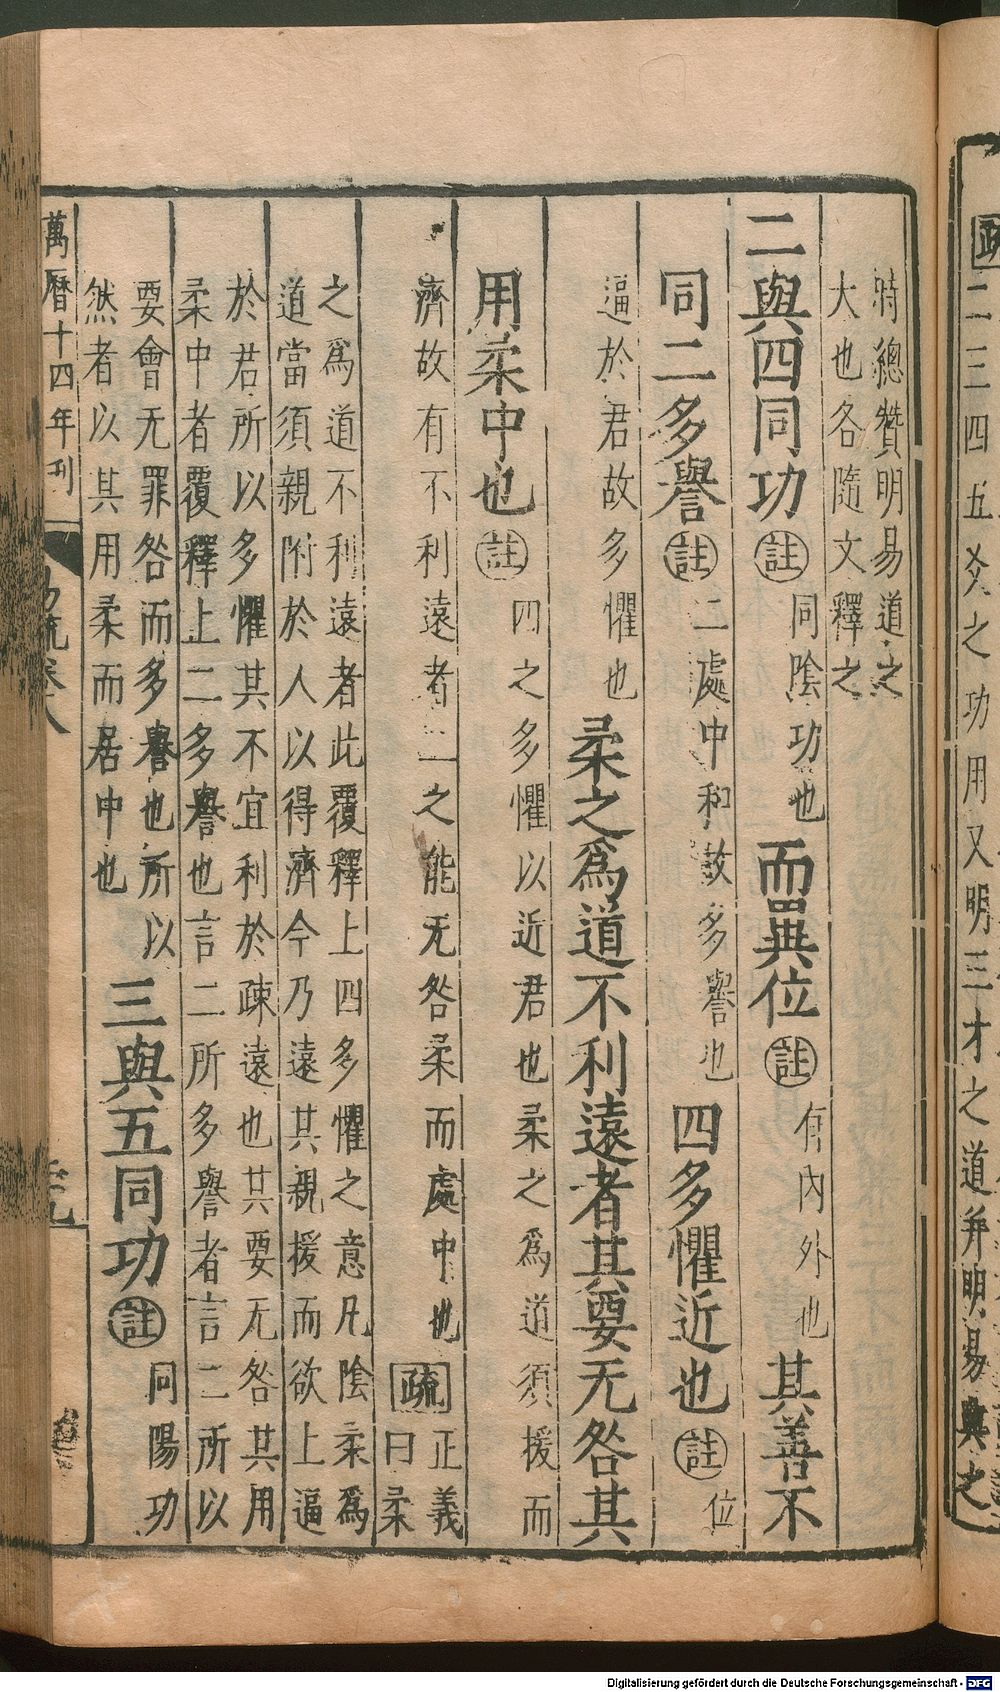 疏二三四五爻之功用又明三才之道并明易興之
特總贊明易道之
大也各隨文釋之
二與四同功註同陰功也而異位註有內外也其善不
同二多譽註二處中和故多譽也四多懼近也註位
逼於君故多懼也柔之爲道不利遠者其要无咎其
用柔中也註四之多懼以近君也柔之爲道須援而
濟故有不利遠者二之能无咎柔而處中也疏正義
曰柔
之爲道不利遠者此覆釋上四多懼之意凡陰柔爲
道當須親附於人以得濟今乃遠其親援而欲上逼
於君所以多懼其不宜利於疎遠也其要无咎其用
柔中者覆釋上二多譽也言二所多譽者言二所以
要會无罪咎而多譽也所以
然者以其用柔而居中也三與五同功註同陽功
萬曆十四年刊
易疏卷八